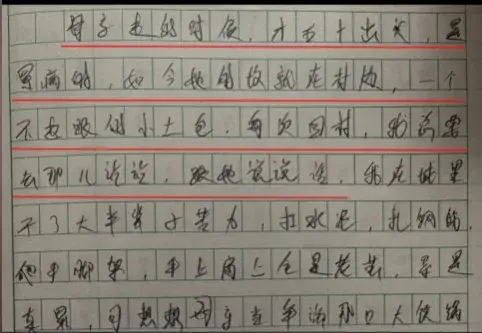 母亲走的时候，才五十出头，是
累病的，如今她的坟就在村边，一个
不起眼的小土包，每次回村，我总要
去那儿说说，跟她说说话，我在城里
干了大半辈子苦力，扛水泥，扎钢筋，
爬手脚架，手上肩上全是老茧，累是
真累，可想想母亲当年海那口大饭锅